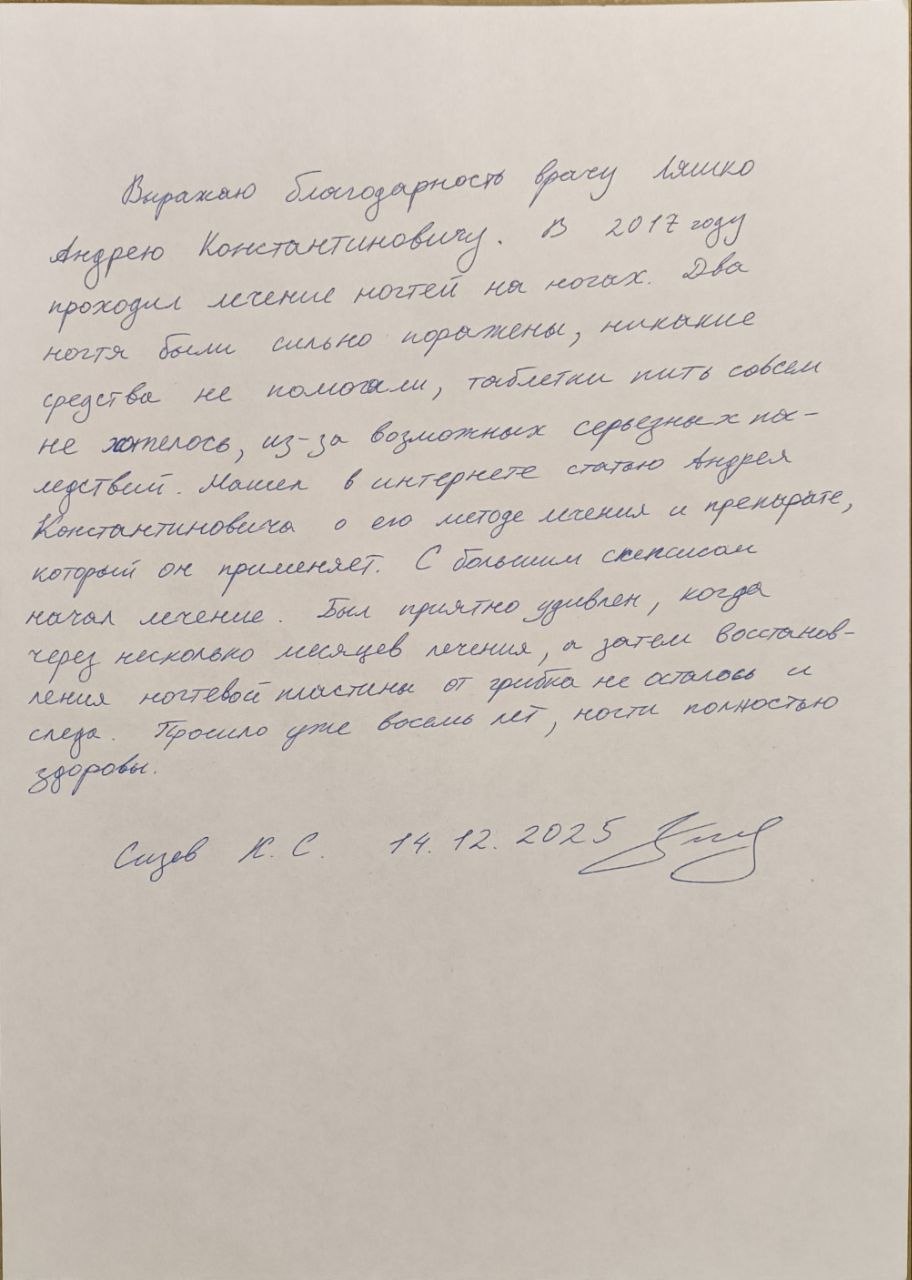 Выражаю благодарность врачу Ляшко
Андрею Константиновичу. В 2017 году
проходил лечение ногтей на ногах. Два
ногтя были сильно поражены, никакие
средства не помогали, таблетки пить совсем
не хотелось, из-за возможных серьезных пос-
ледствий. Нашел в интернете статью Андрея
Константиновича о его методе лечения и препарате,
который он применяет. С большим скепсисом
начал лечение. Был приятно удивлен, когда
через несколько месяцев лечения, а затем восстанов-
ления ногтевой пластины от грибка не осталось и
следа. Прошло уже восемь лет, ногти полностью
здоровы.
Сизев К. С. 14.12.2025